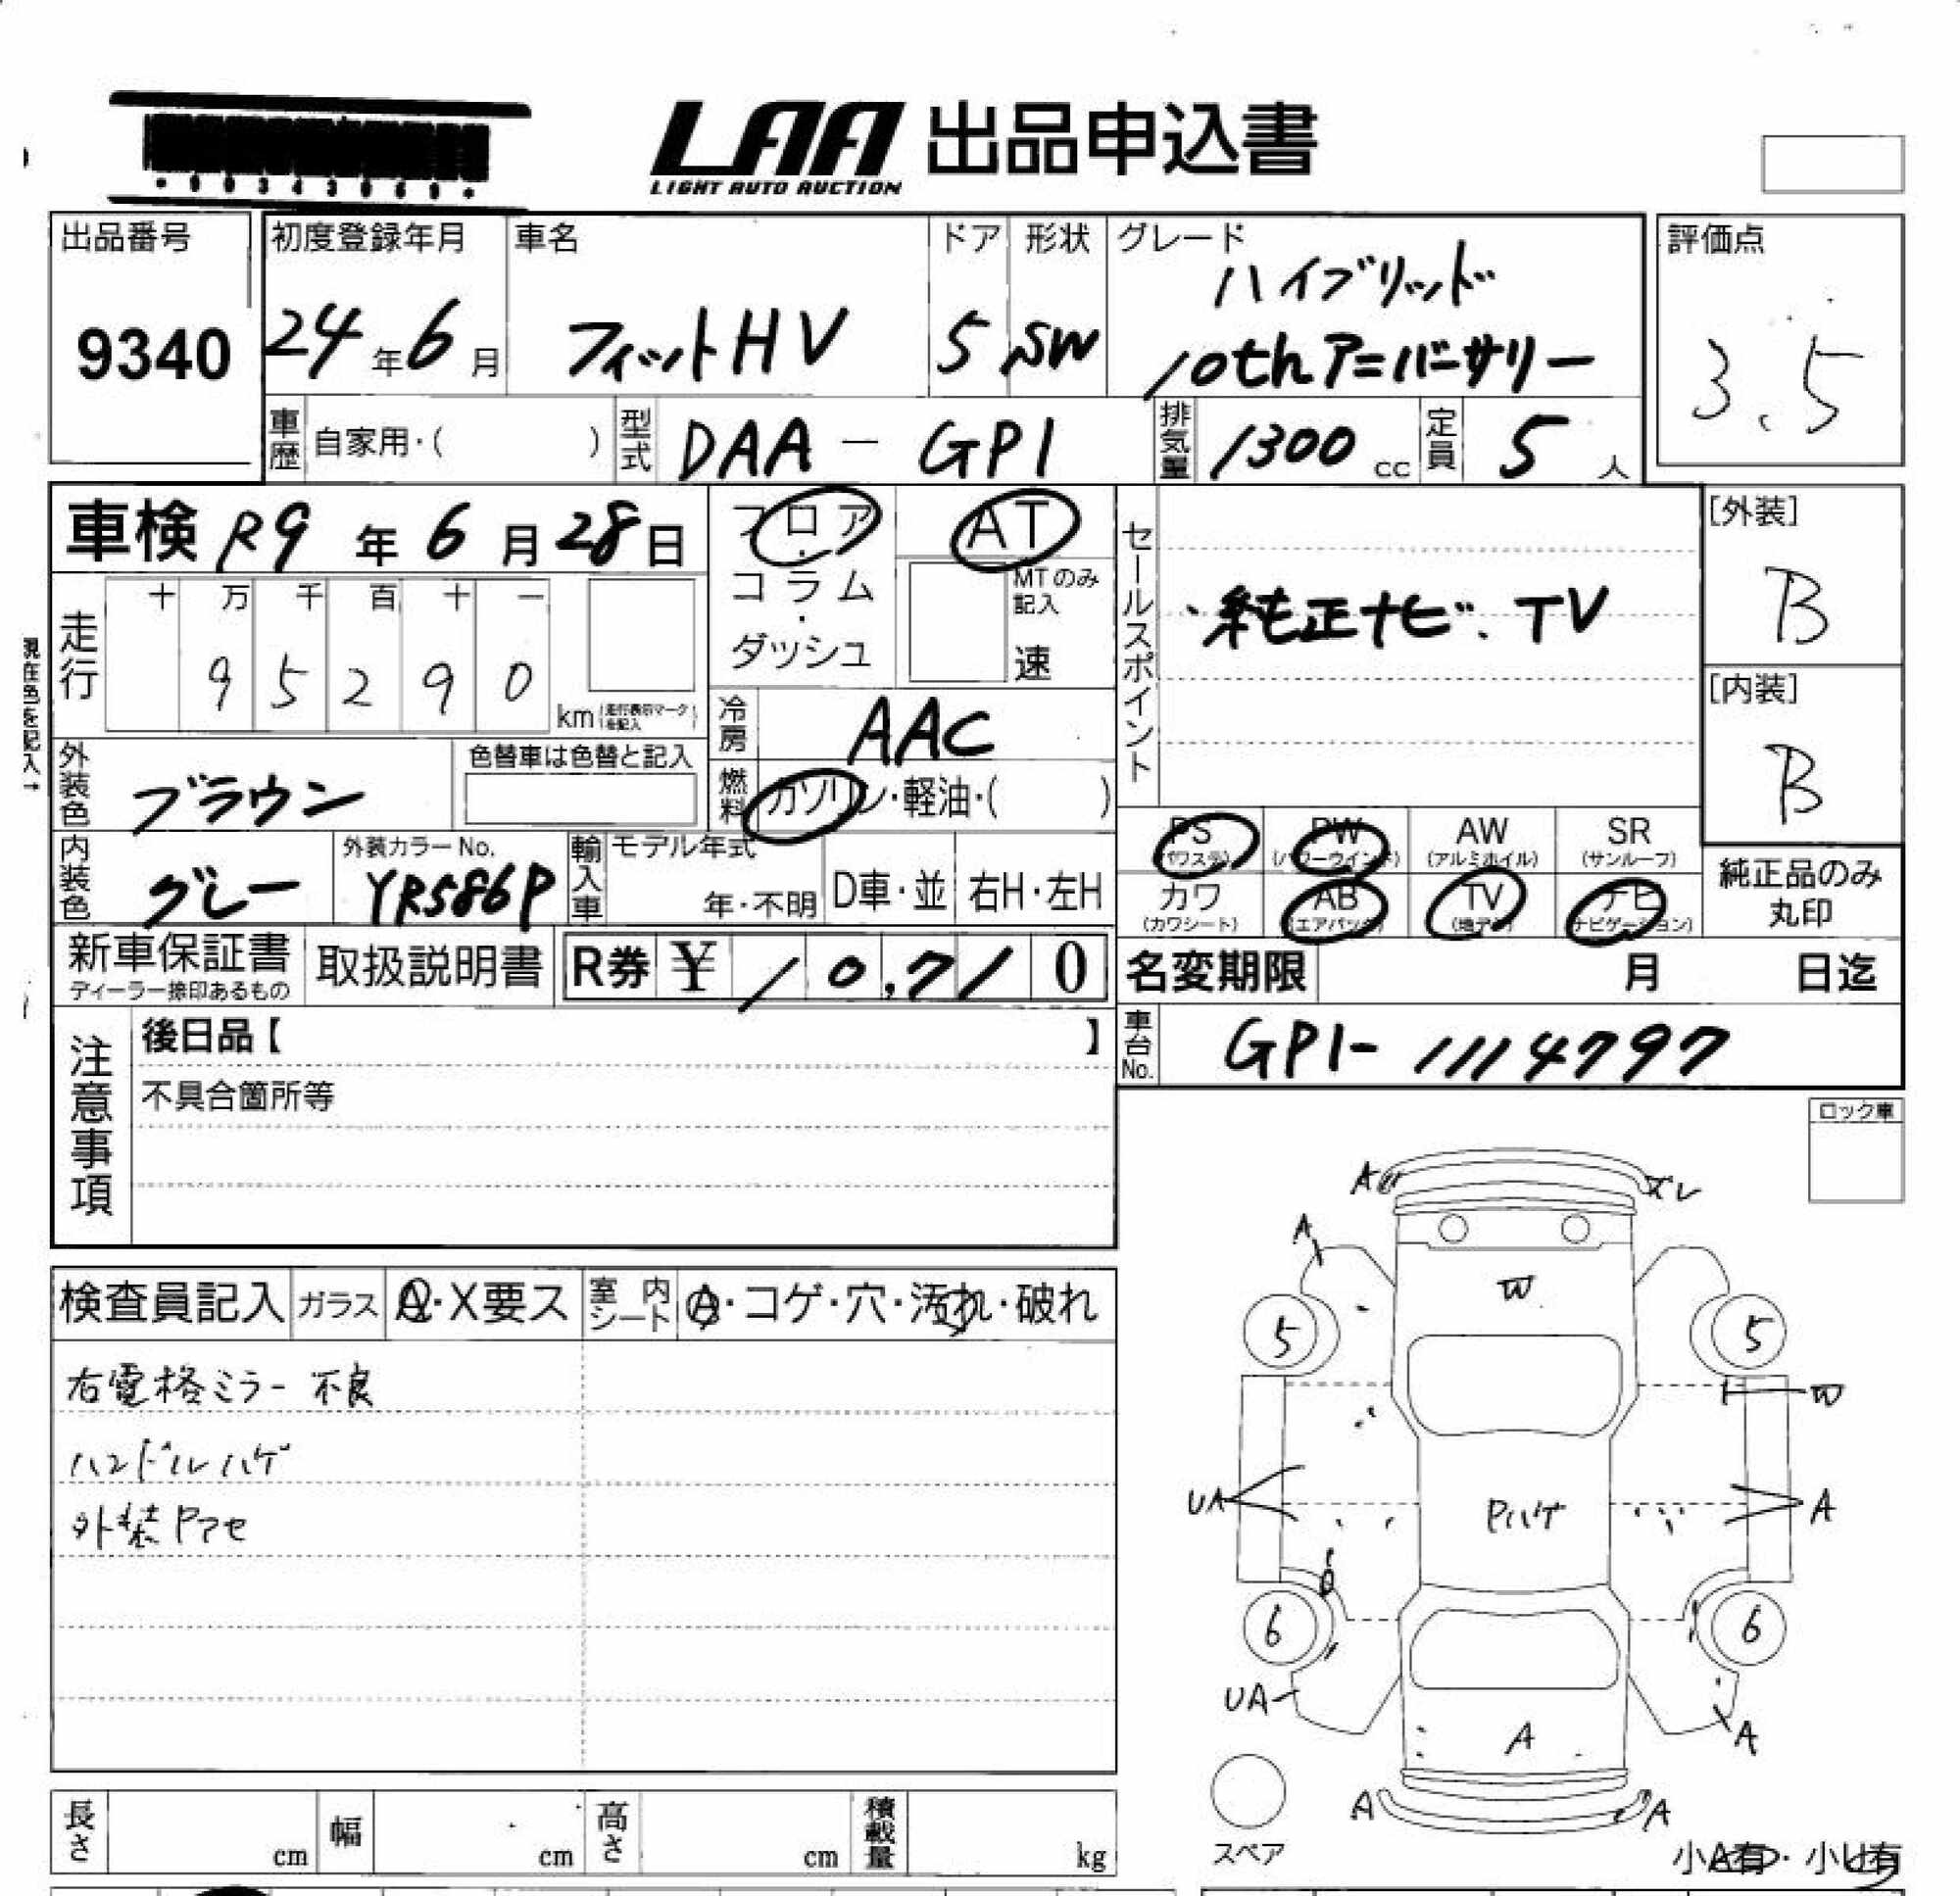 LAA 出品申込書
LIGHT AUTO AUCTION
出品番号
9340
初度登録年月
24年6月
車名
フィットHV
ドア
5
形状
SW
グレード
ハイブリッド
10thアニバーサリー
評価点
3.5
車歴
自家用・( )
型式
DAA-GP1
排気量
1300cc
定員
5人
車検 R9年6月28日
フロア・コラム・ダッシュ
AT
MTのみ記入
速
セールスポイント
・純正ナビ.TV
[外装]
B
[内装]
B
走行
十 万 千 百 十 一
9 5 2 9 0
km(走行表示マークを記入)
現在色を記入→
冷房
AAC
外装色
ブラウン
色替車は色替と記入
燃料
ガソリン・軽油・( )
内装色
グレー
外装カラーNo.
YR586P
輸入車
モデル年式
年・不明
D車・並
右H・左H
PS
(パワステ)
PW
(パワーウインド)
AW
(アルミホイル)
SR
(サンルーフ)
カワ
(カワシート)
AB
(エアバッグ)
TV
(地デジ)
ナビ
(ナビゲーション)
純正品のみ
丸印
新車保証書
ディーラー捺印あるもの
取扱説明書
R券 ¥ 10,710
名変期限 月 日迄
注意事項
後日品【 】
不具合箇所等
車台No.
GP1-1114797
ロック車
検査員記入
ガラス
A・X要ス
室内シート
A・コゲ・穴・汚れ・破れ
右電格ミラー不良
ハンドルハゲ
外装Pアセ
A
ズレ
A
W
5
5
W
UA
Pハゲ
A
6
6
UA
A
A
A
A
スペア
小A有・小U有
長さ cm
幅 cm
高さ cm
積載量 kg